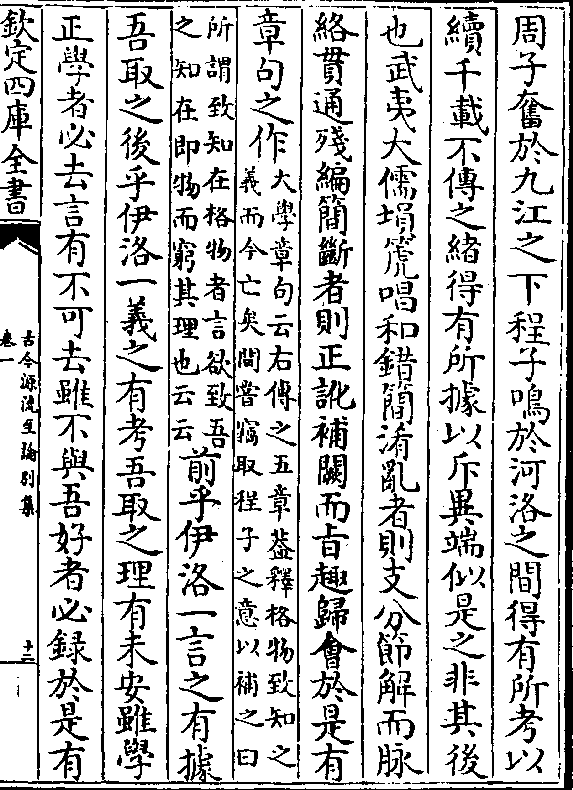 周子奮於九江之下程子鳴於河洛之間得有所考以
續千載不傳之緒得有所據以斥異端似是之非其後
也武夷大儒塤箎唱和錯簡淆亂者則支分節解而脉
絡貫通殘編簡斷者則正訛補闕而㫖趣歸會於是有
章句之作大學章句云右傳之五章葢釋格物致知之
義而今亡矣間嘗竊取程子之意以補之曰
所謂致知在格物者言欲致吾
之知在即物而窮其理也云云前乎伊洛一言之有據
吾取之後乎伊洛一義之有考吾取之理有未安雖學
正學者必去言有不可去雖不與吾好者必録於是有
欽定四庫全書
古今源流至論別集
卷一
十二